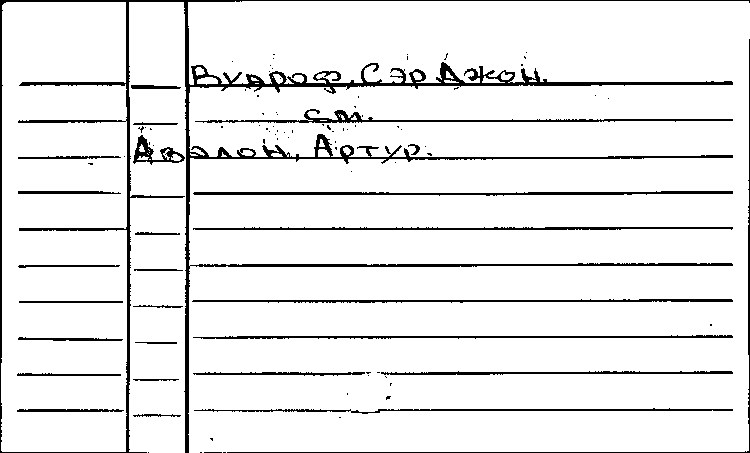 Вудроф, Сэр Джон.
см.
Авэлон, Артур.